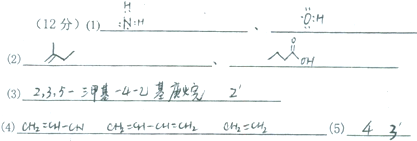 (12分) (1) H :N:H 、 ·O:H
(2) 、 O OH
(3) 2,3,5-三甲基-4-乙基庚烷 2'
(4) CH₂=CH-CN CH₂=CH-CH=CH₂ CH₂=CH₂ (5) 4 3'